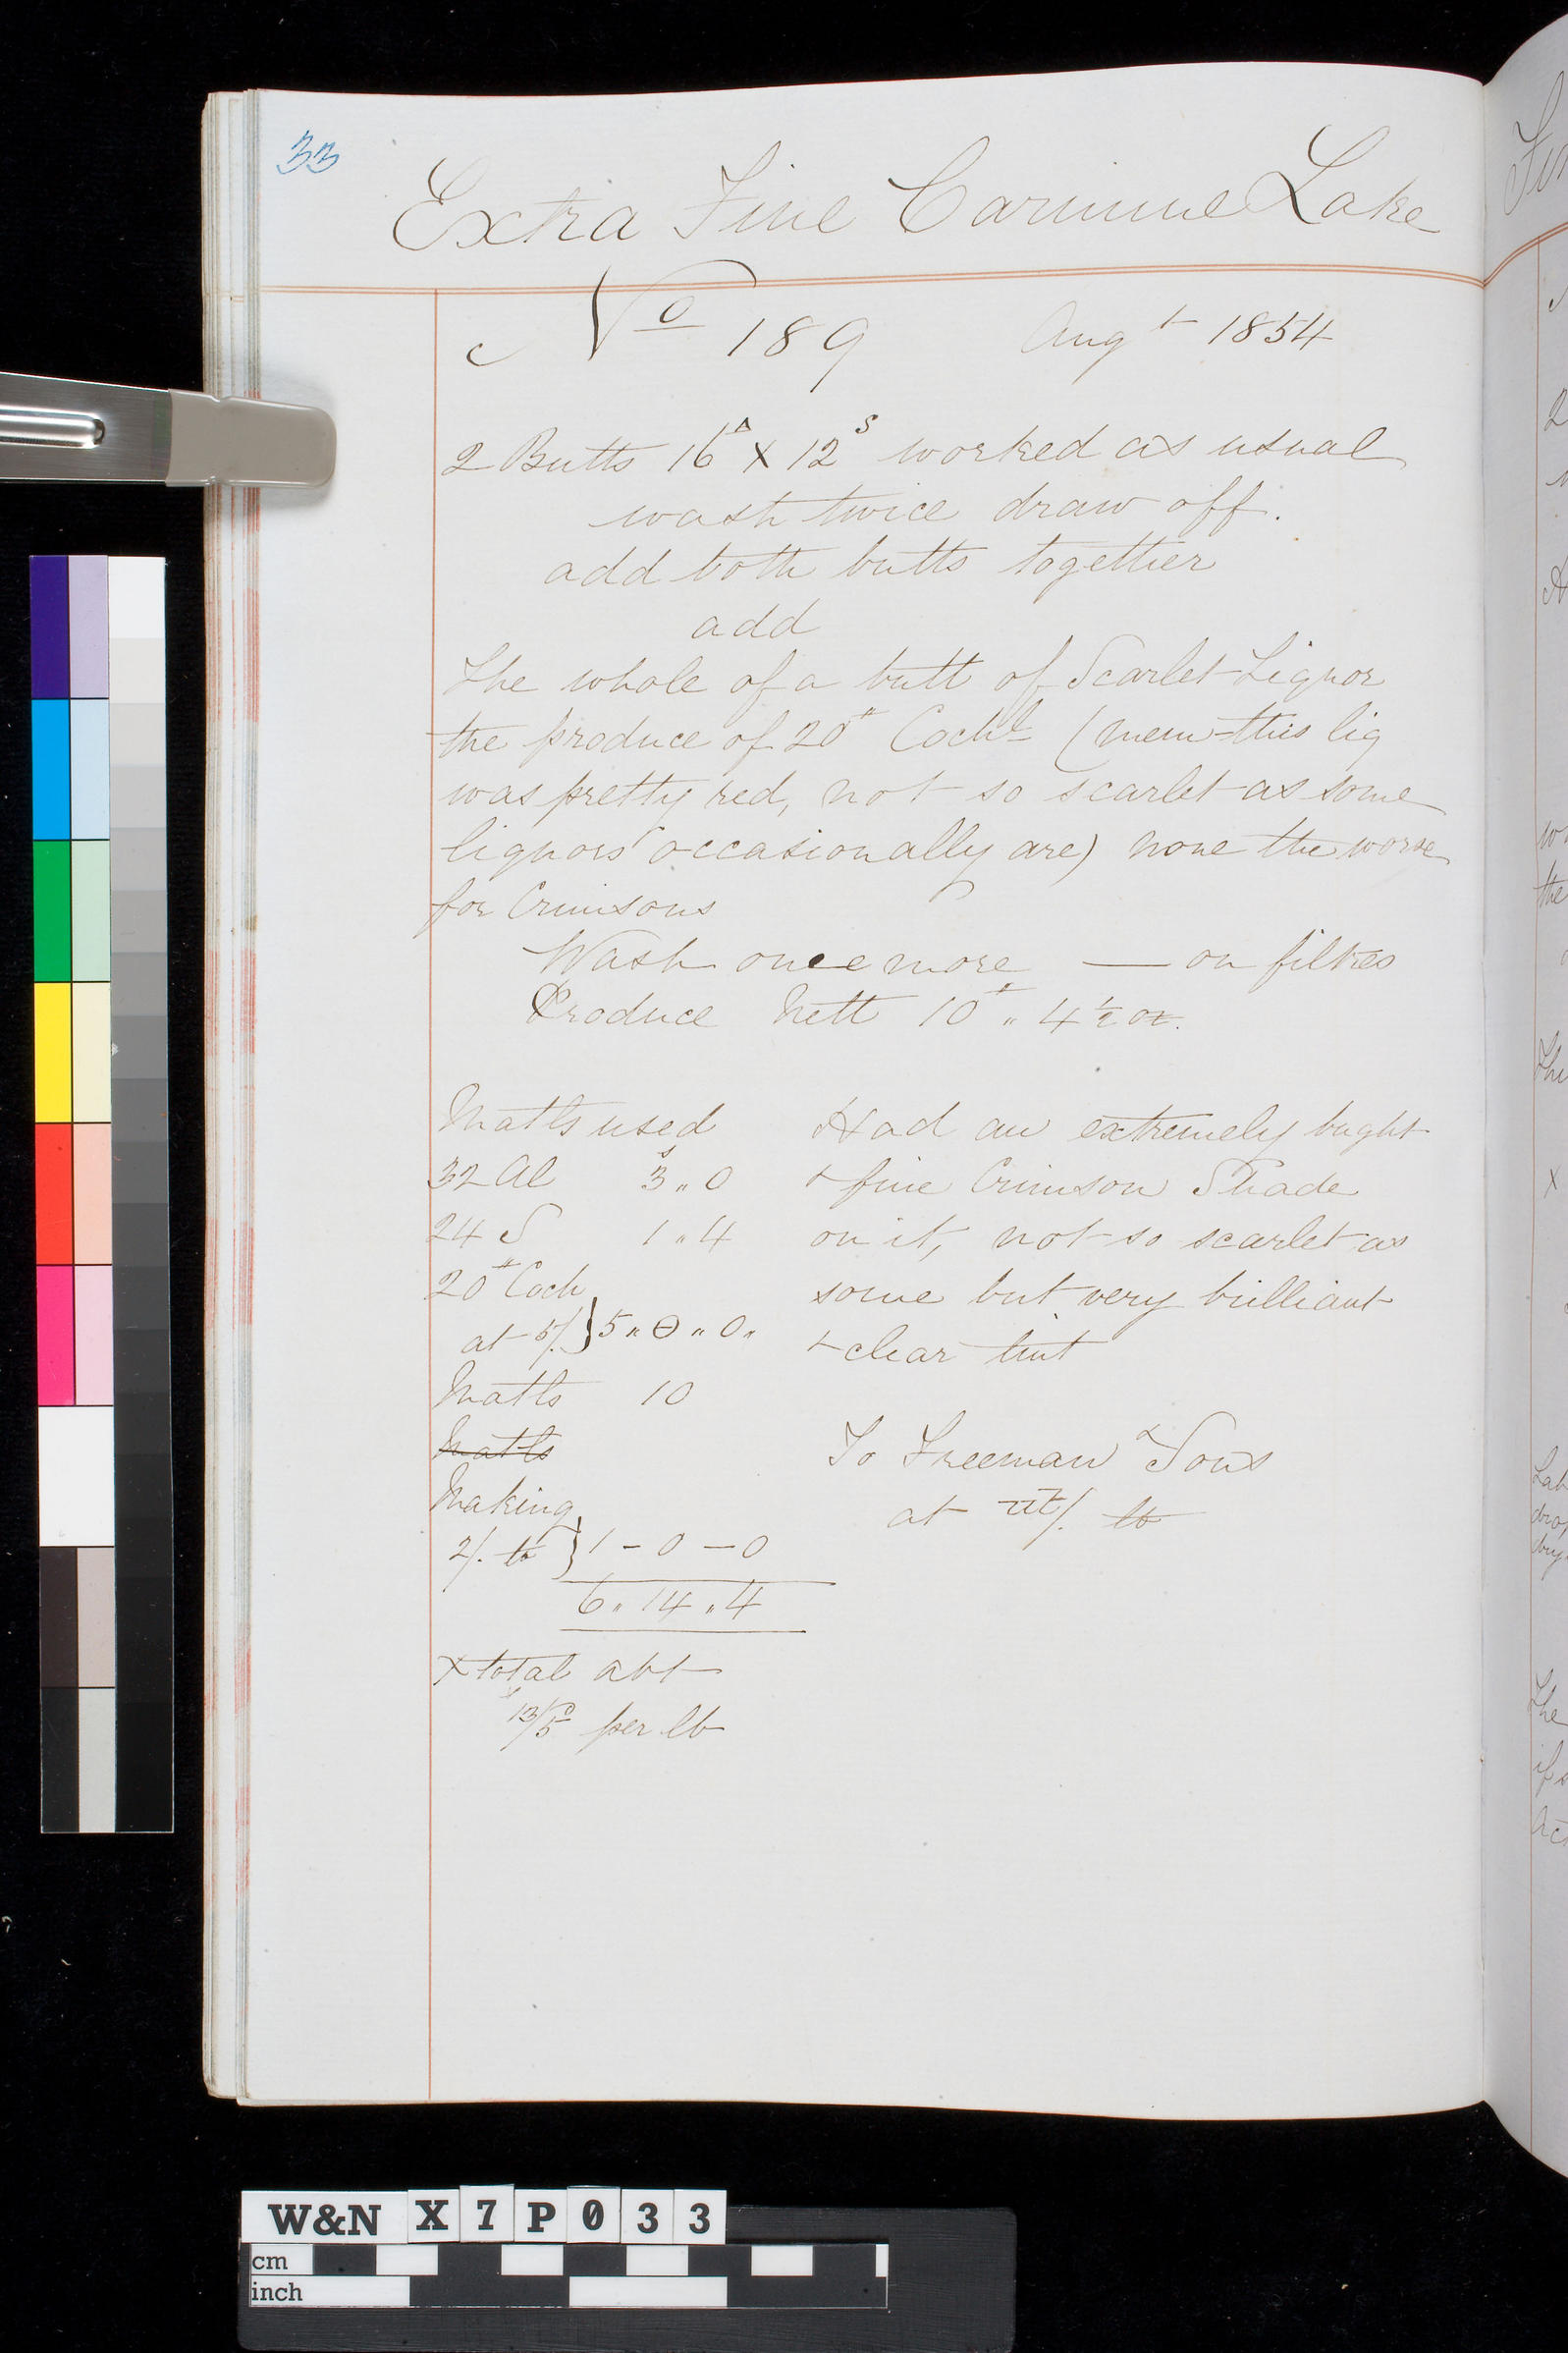 33
Extra Fine Carmine Lake
No 189 Augt 1854
2 Butts 16A x 12S worked as usual
wash twice draw off.
add both butts together
add
The whole of a butt of Scarlet Liquor
the produce of 20# Cochl (mem this liq
was pretty red, not so scarlet as some
liquors occasionally are) none the worse
for Crimsons
Wash once more — on filtres
Produce Nett 10# " 4 1/2 oz.
Matls used
32 Al 3s " 0
24 S 1 " 4
20# Coch
at 5/. } 5 " 0 " 0 "
Matls 10
Matls
Making
2/. lb } 1 - 0 - 0
6 " 14 " 4
x total abt
13/5 per lb
Had an extremely bright
+ fine Crimson Shade
on it, not so scarlet as
some but very brilliant
+ clear tint
To Freeman & Sons
at /. lb
W&N X7P033
cm
inch